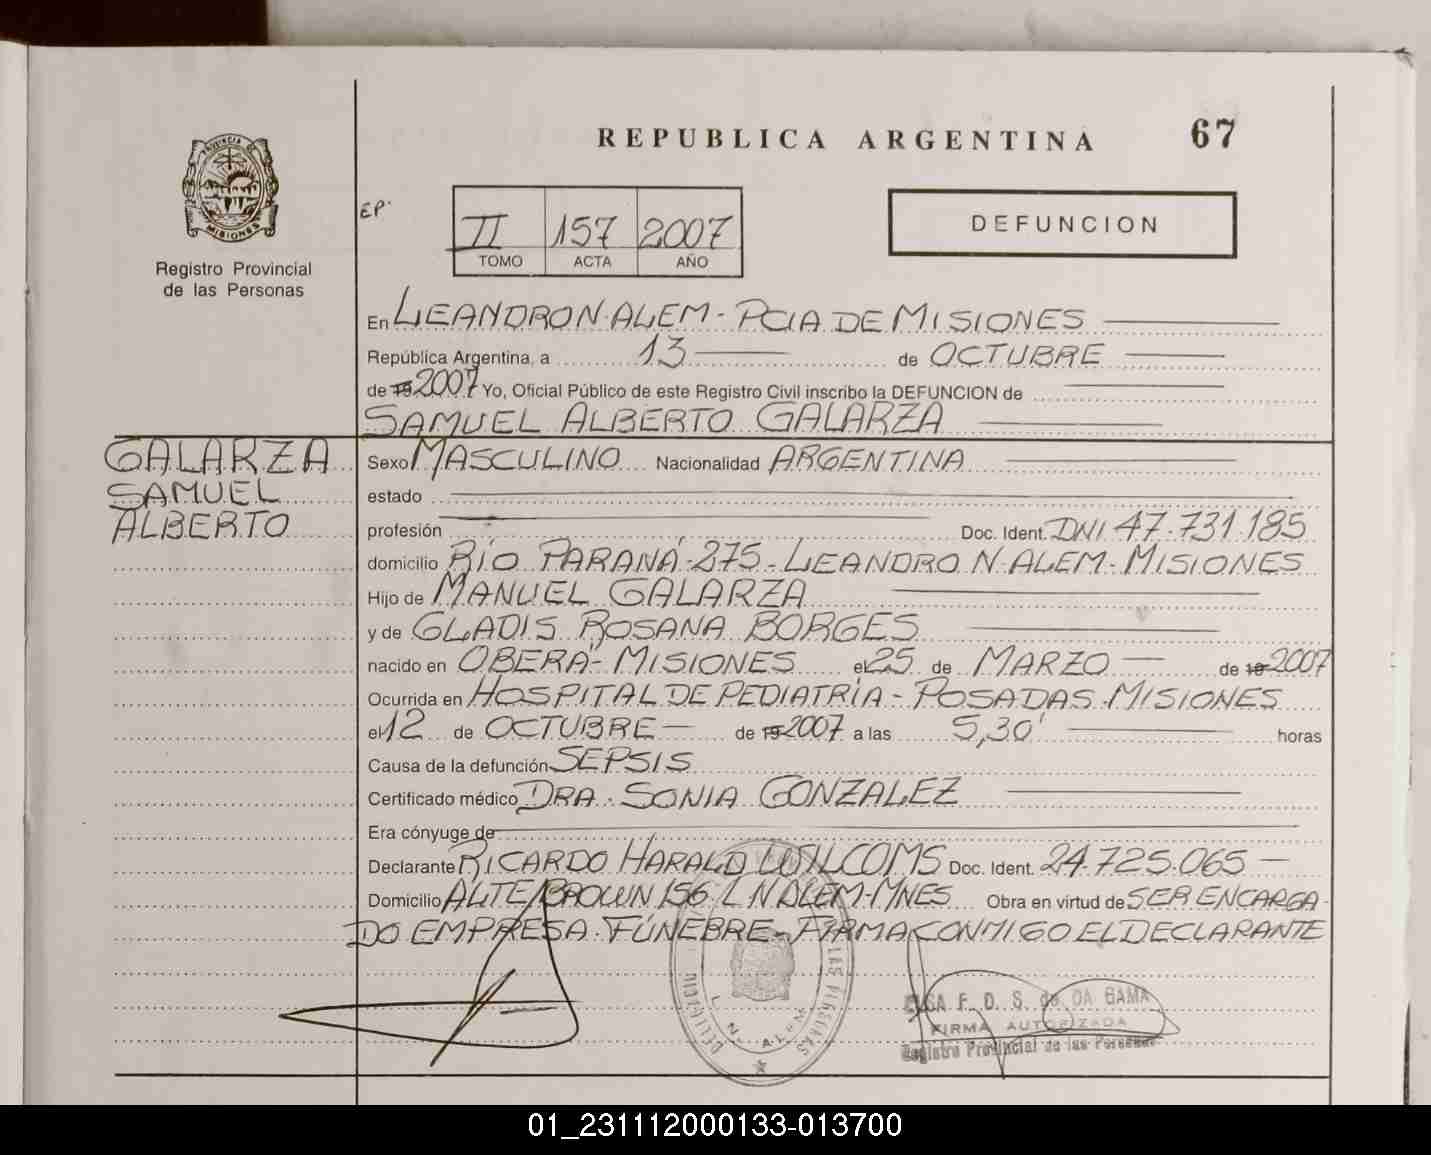 REPUBLICA ARGENTINA 67
PROVINCIA DE
MISIONES
Registro Provincial
de las Personas
EP.
II 157 2007
TOMO ACTA AÑO
DEFUNCION
En LEANDRO N. ALEM - PCIA DE MISIONES
República Argentina, a 13 de OCTUBRE
de 19 2007 Yo, Oficial Público de este Registro Civil inscribo la DEFUNCION de
SAMUEL ALBERTO GALARZA
GALARZA
SAMUEL
ALBERTO
Sexo MASCULINO Nacionalidad ARGENTINA
estado
profesión Doc. Ident. DNI 47.731.185
domicilio RÍO PARANÁ-275-LEANDRO N. ALEM-MISIONES
Hijo de MANUEL GALARZA
y de GLADIS ROSANA BORGES
nacido en OBERÁ-MISIONES el 25 de MARZO de 19 2007
Ocurrida en HOSPITAL DE PEDIATRÍA-POSADAS-MISIONES
el 12 de OCTUBRE de 19 2007 a las 5,30' horas
Causa de la defunción SEPSIS
Certificado médico DRA. SONIA GONZALEZ
Era cónyuge de
Declarante RICARDO HARALD WILCOMS Doc. Ident. 24.725.065
Domicilio ALTE BROWN 156 L N ALEM-MNES Obra en virtud de SER ENCARGA-
DO EMPRESA FÚNEBRE-FIRMA CONMIGO EL DECLARANTE
LAS PERSONAS
L. N. ALEM
F. D. S. de DA GAMA
FIRMA AUTORIZADA
Registro Provincial de las Personas
01_231112000133-013700